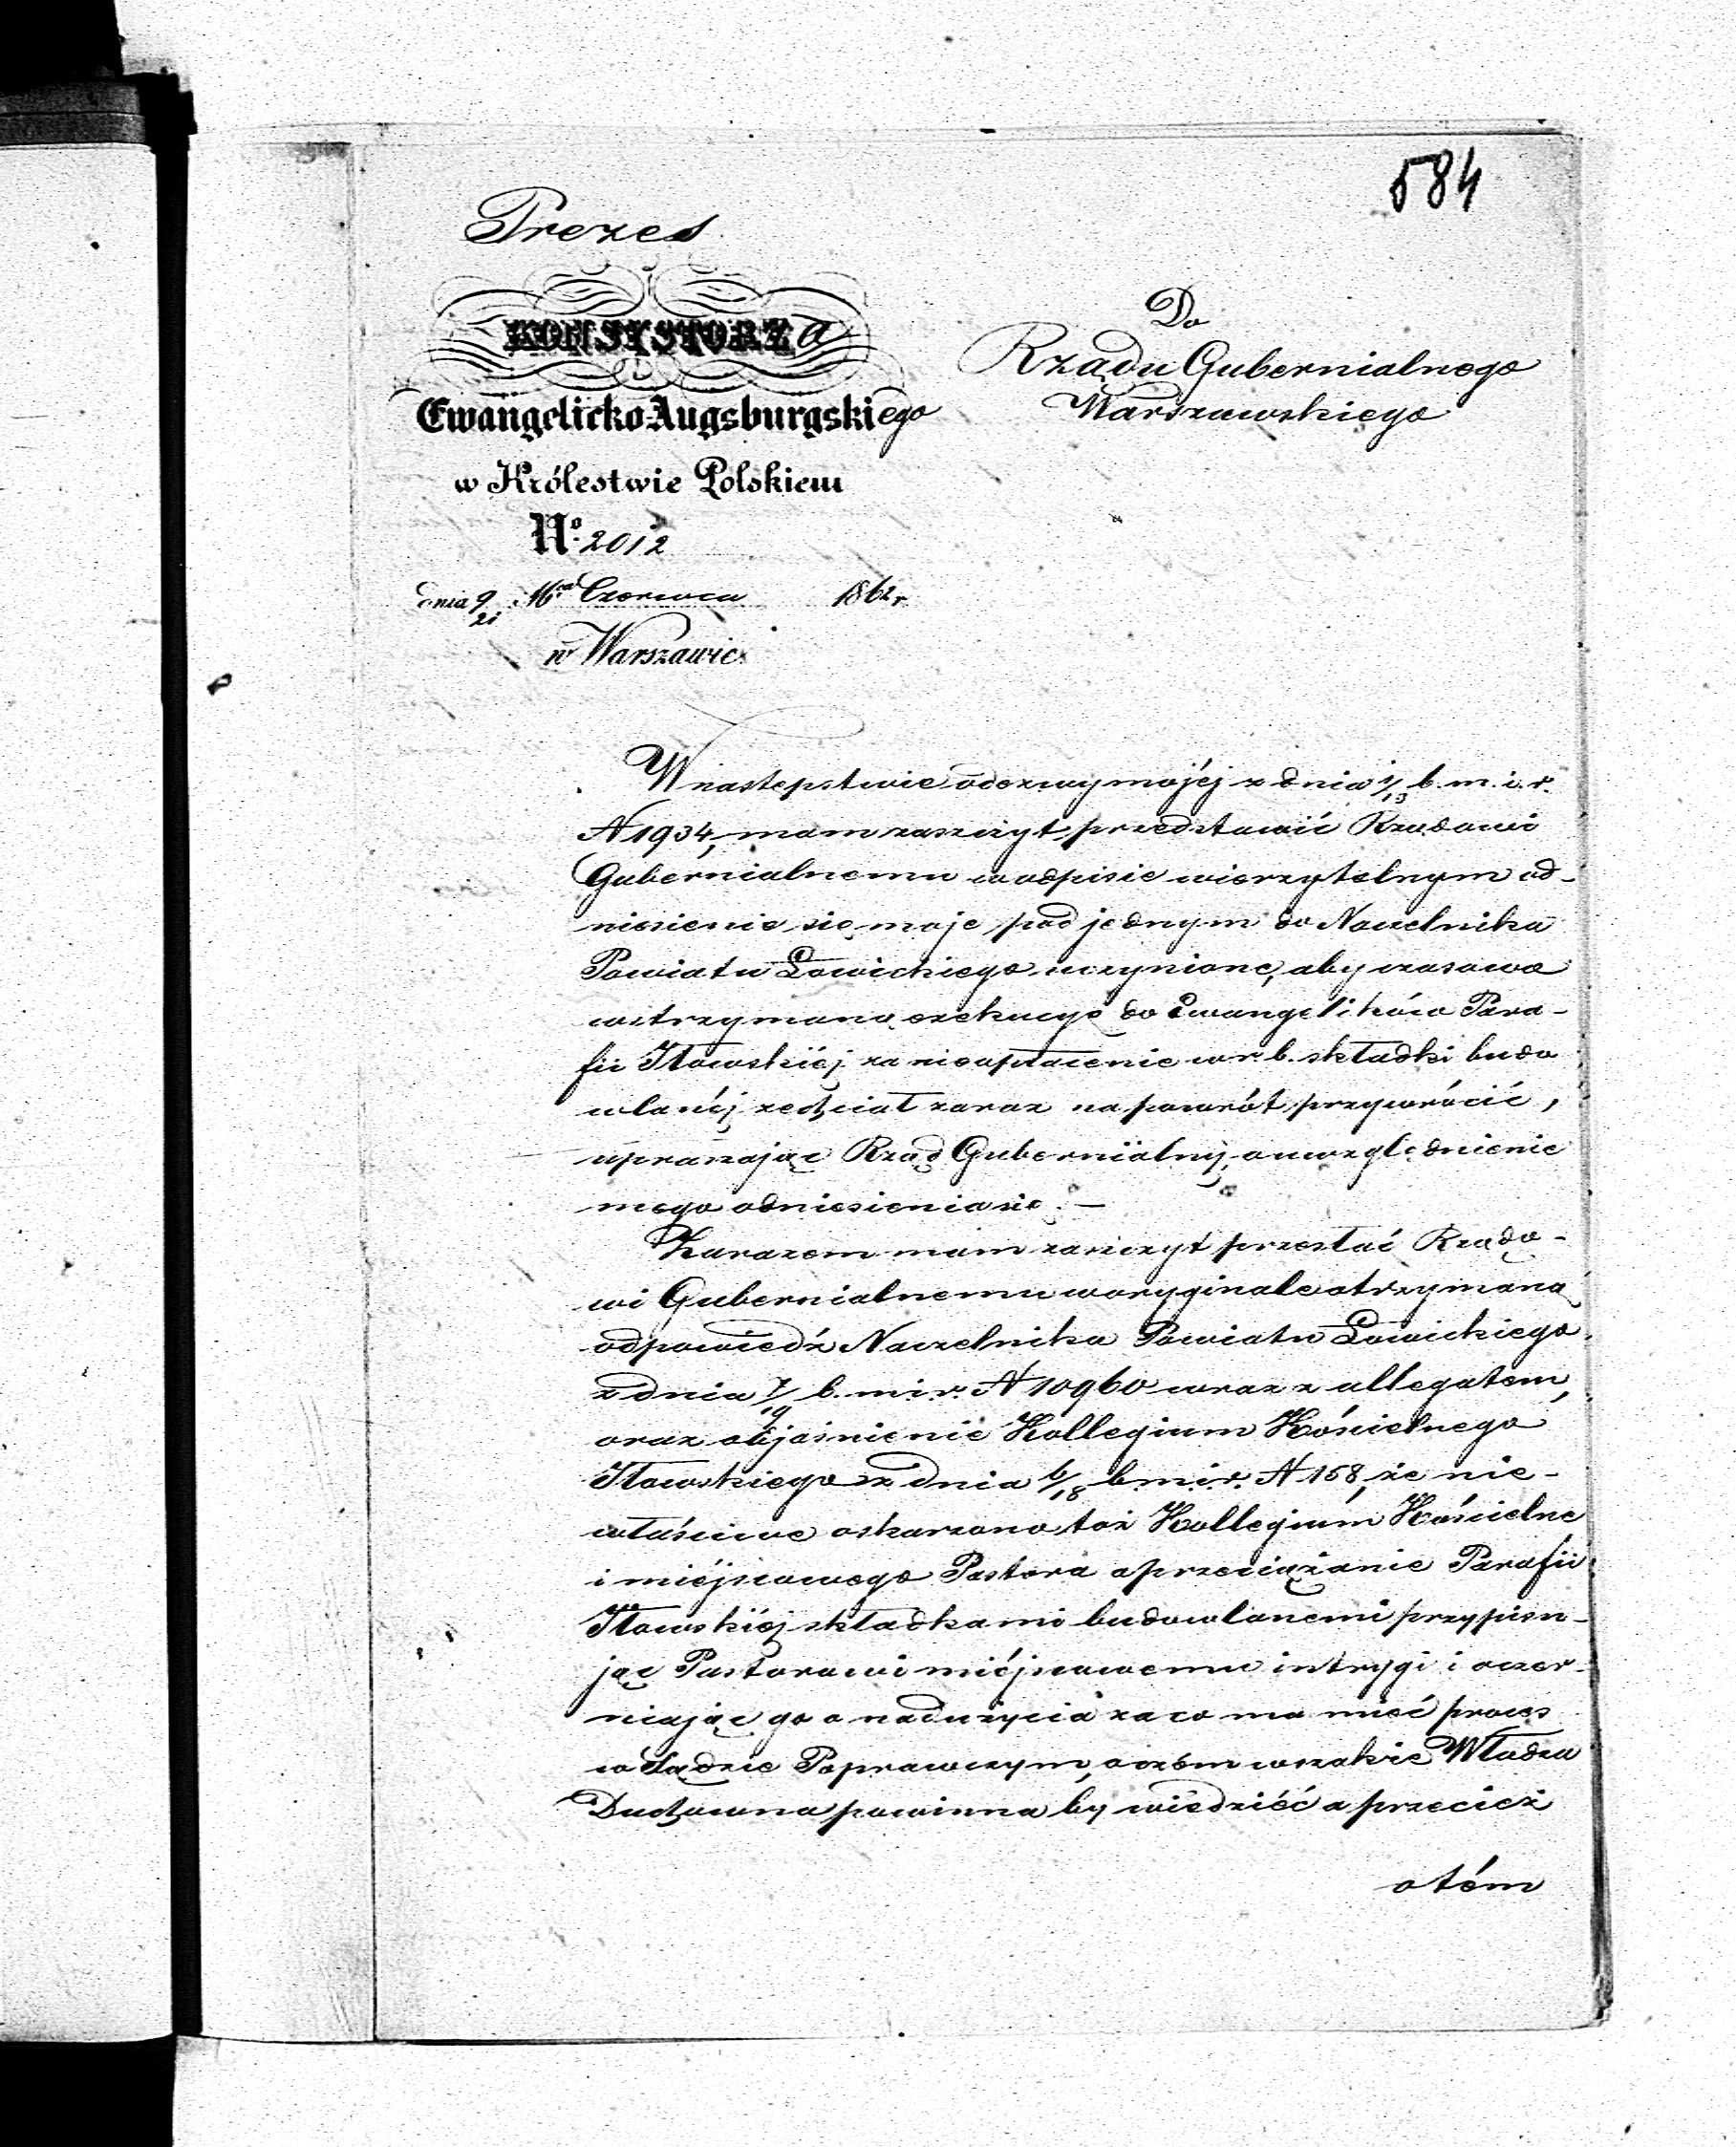 584
Prezes
KONSYSTORZa
Ewangelicko Augsburgskiego
w Królestwie Polskiem
No. 2012
dnia 9/21 Mca Czerwca 1862 r.
w Warszawie.
Do
Rządu Gubernialnego
Warszawskiego
W następstwie odezwy mojéj z dnia 1/13 b. m. i. r.
N 1934, mam zaszczyt przedstawić Rządowi
Gubernialnemu w odpisie wierzytelnym od-
niesienie się moje pod jednym do Naczelnika
Powiatu Łowickiego uczynione, aby czasowo
wstrzymaną exekucyę do Ewangelików Para-
fii Iłowskiéj za nieopłacenie w r. b. składki budo
wlanéj zechciał zaraz na powrót przywrócić,
upraszając Rząd Gubernialny, o uwzględnienie
mego odniesienia się. —
Zarazem mam zaszczyt przesłać Rządo-
wi Gubernialnemu w oryginale otrzymaną
odpowiedź Naczelnika Powiatu Łowickiego
z dnia 7/19 b. m i r. N 10960 wraz z allegatem,
oraz objaśnienie Kollegium Kościelnego
Iłowskiego z dnia 6/18 b. m. i. r. N 158, że nie-
właściwe oskarżono toż Kollegium Kościelne
i miéjscowego Pastora o przeciążanie Parafii
Iłowskiéj składkami budowlanemi przypisu-
jąc Pastorowi miéjscowemu intrygi i oczer-
niając go o nadużycia za co ma mieć proces
w Sądzie Poprawczym, o czém wszakże Władza
Duchowna powinna by wiedziéć a przecież
o tém